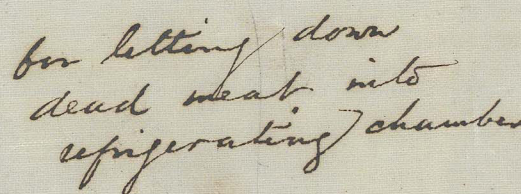 for letting down
dead meat into
refrigerating chamber